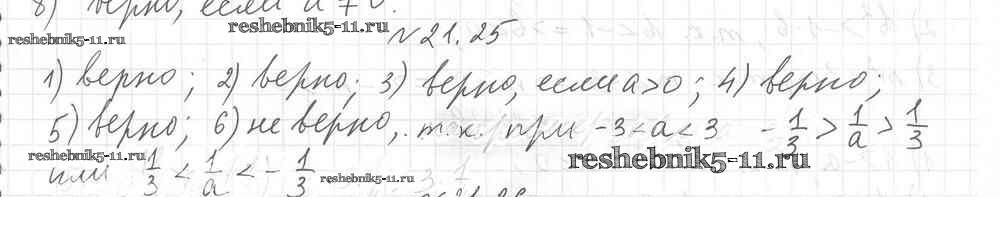 8) верно, если a ≠ 0.
reshebnik5-11.ru
reshebnik5-11.ru
№21.25
1) верно; 2) верно; 3) верно, если a>0; 4) верно;
5) верно; 6) не верно, т.к. при -3<a<3 -1/3 > 1/a > 1/3
reshebnik5-11.ru
reshebnik5-11.ru
или 1/3 < 1/a < -1/3
reshebnik5-11.ru